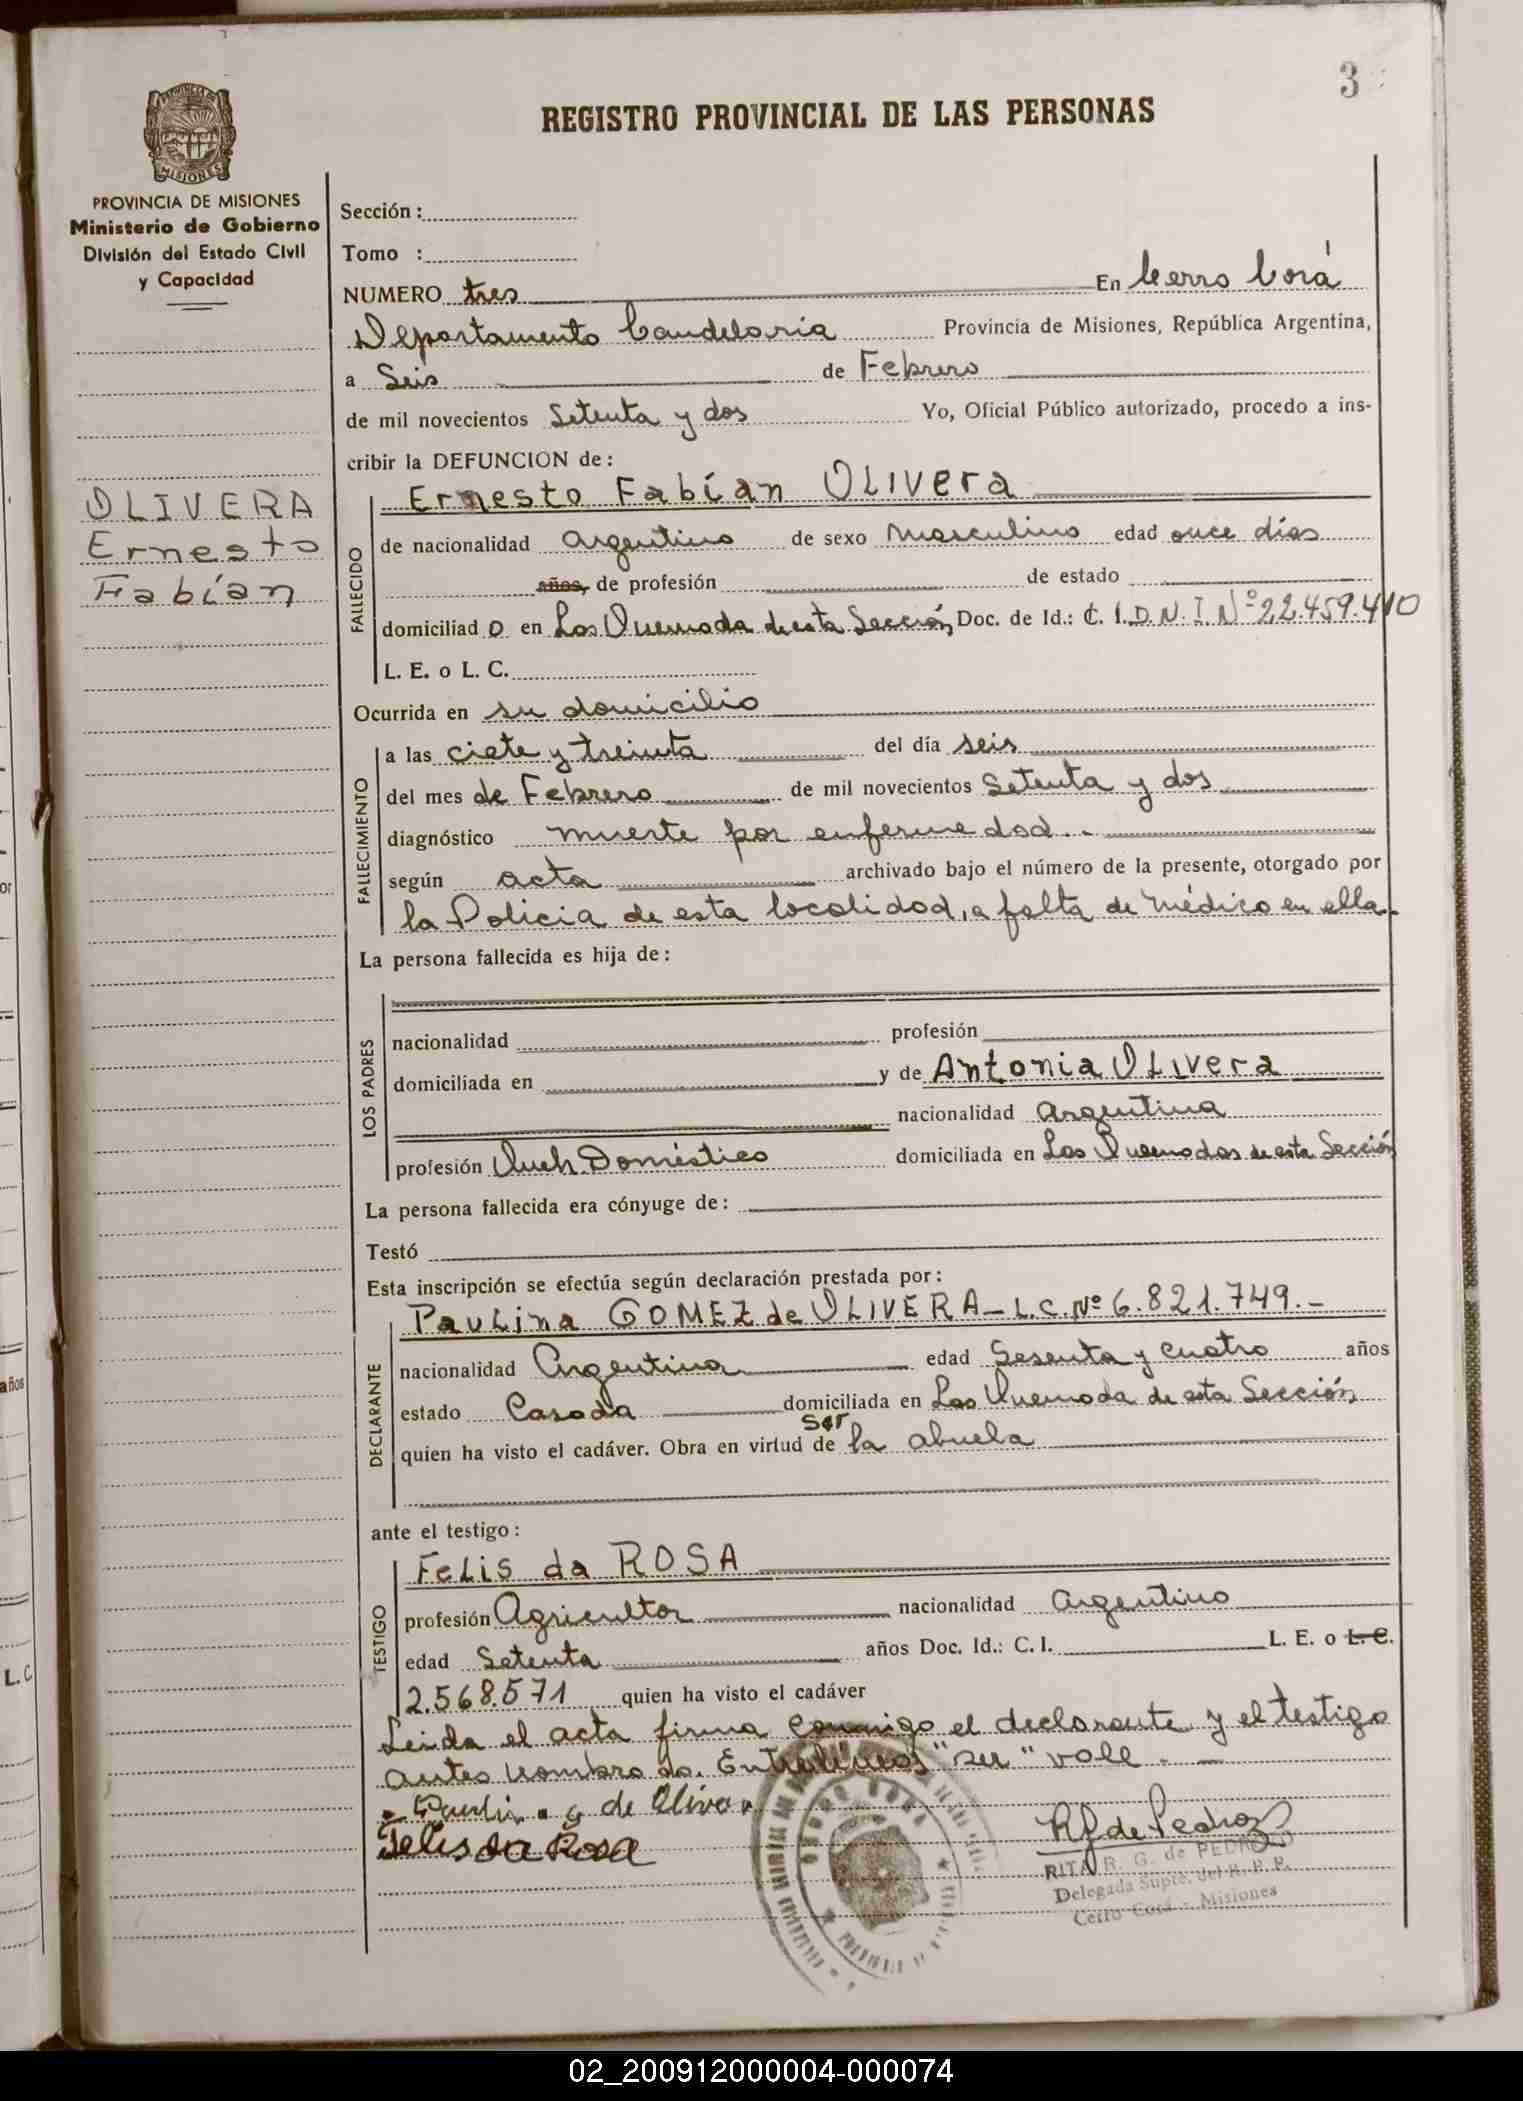 3
REGISTRO PROVINCIAL DE LAS PERSONAS
PROVINCIA DE MISIONES
Ministerio de Gobierno
División del Estado Civil
y Capacidad
OLIVERA
Ernesto
Fabían
Sección:
Tomo :
NUMERO tres En Cerro Corá
Departamento Candelaria Provincia de Misiones, República Argentina,
a Seis de Febrero
de mil novecientos Setenta y dos Yo, Oficial Público autorizado, procedo a ins-
cribir la DEFUNCION de:
FALLECIDO
Ernesto Fabían OLIVera
de nacionalidad Argentino de sexo Masculino edad once días
años, de profesión de estado
domiciliad o en Las Quemada de esta Sección Doc. de Id.: C. I. D.N.I. Nº 22.459.410
L. E. o L. C.
Ocurrida en su domicilio
FALLECIMIENTO
a las ciete y treinta del día seis
del mes de Febrero de mil novecientos Setenta y dos
diagnóstico muerte por enfermedad..
según acta archivado bajo el número de la presente, otorgado por
la Policia de esta localidad, a falta de médico en ella.
La persona fallecida es hija de:
LOS PADRES
nacionalidad profesión
domiciliada en y de Antonia OLIVera
nacionalidad Argentina
profesión Queh. Doméstico domiciliada en Las Quemadas de esta Sección
La persona fallecida era cónyuge de:
Testó
Esta inscripción se efectúa según declaración prestada por:
DECLARANTE
PauLina GOMEZ de OLIVERA - L.C. Nº 6.821.749.-
nacionalidad Argentina edad Sesenta y cuatro años
estado Casada domiciliada en Las Quemada de esta Sección
ser
quien ha visto el cadáver. Obra en virtud de la abuela
ante el testigo:
TESTIGO
FeLis da ROSA
profesión Agricultor nacionalidad Argentino
edad Setenta años Doc. Id.: C. I. L. E. o L. C.
2.568.571 quien ha visto el cadáver
Leida el acta firma conmigo el declarante y el testigo
antes nombrado. Entrelíneas "ser" vale. -
de Oliver
Felis da Rosa
R G de Pedrozo
RITA R. G. de PEDROZO
Delegada Supte. del R. P. P.
Cerro Corá - Misiones
02_200912000004-000074